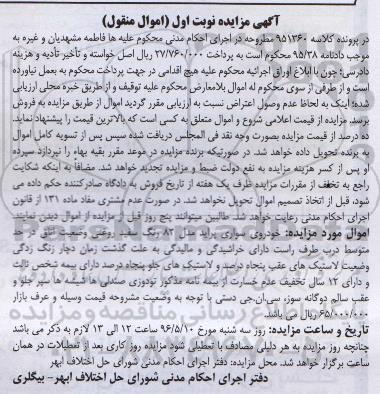 آگهی مزایده نوبت اول (اموال منقول)
در پرونده کلاسه ۹۵۱۳۶۰ مطروحه در اجرای احکام مدنی محکوم علیه ها فاطمه مشهدیان و غیره به
موجب دادنامه ۹۵/۳۸ محکوم است به پرداخت ۲۷/۷۶۰/۰۰۰ ریال اصل خواسته و تأخیر تأدیه و هزینه
دادرسی؛ چون با ابلاغ اوراق اجرائیه محکوم علیه هیچ اقدامی در جهت پرداخت محکوم به بعمل نیاورده
است و از طرفی از سوی محکوم له اموال بلامعارض محکوم علیه توقیف و از طریق خبره محلی ارزیابی
شده؛ اینک به لحاظ عدم وصول اعتراض نسبت به ارزیابی مقرر گردید اموال از طریق مزایده به فروش
برسد. مزایده از قیمت اعلامی شروع و اموال متعلق به کسی است که بالاترین قیمت را پیشنهاد نماید.
ده درصد از قیمت مزایده بصورت وجه نقد فی المجلس دریافت شده سپس پس از تسویه کامل اموال
به برنده تحویل داده خواهد شد. در صورتیکه برنده مزایده در موعد مقرر بقیه بهاء را نپردازد سپرده
او پس از کسر هزینه مزایده به نفع دولت ضبط و مزایده تجدید خواهد شد. مضافاً به اینکه شکایت
راجع به تخلف از مقررات مزایده ظرف یک هفته از تاریخ فروش به دادگاه صادرکننده حکم داده می
شود، قبل از اتخاذ تصمیم اموال تحویل نخواهد شد. در صورت عدم مشتری مفاد ماده ۱۳۱ از قانون
اجرای احکام مدنی رعایت خواهد شد. طالبین میتوانند پنج روز قبل از مزایده از اموال دیدن نمایند
اموال مورد مزایده: خودروی سواری پراید مدل ۸۲ رنگ سفید روغنی وضعیت اتاق در حد
متوسط درب طرف راست دارای خراشیدگی و مالیدگی به علت گذشت زمان دچار رنگ زدگی
وضعیت لاستیک های عقب پنجاه درصد و لاستیک های جلو پنجاه درصد دارای بیمه شخص ثالث
و دارای ۱۲ سال تخفیف عدم خسارت از بیمه نامه مذکور تودوزی صندلی ها شیشه ها سپر جلو و
عقب سالم دوگانه سوز، سی.ان.جی دستی با توجه به وضعیت مشروحه قیمت وسیله و عرف بازار
۶۵/۰۰۰/۰۰۰ ریال می باشد.
تاریخ و ساعت مزایده: روز سه شنبه مورخ ۹۶/۵/۱۰ ساعت ۱۲ الی ۱۳ لازم به ذکر می باشد
چنانچه روز مزایده به هر دلیلی مصادف با تعطیلی شود مزایده روز کاری بعد از تعطیلات در همان
ساعت برگزار خواهد شد. محل مزایده: دفتر اجرای احکام مدنی شورای حل اختلاف ابهر
دفتر اجرای احکام مدنی شورای حل اختلاف ابهر- بیگلری